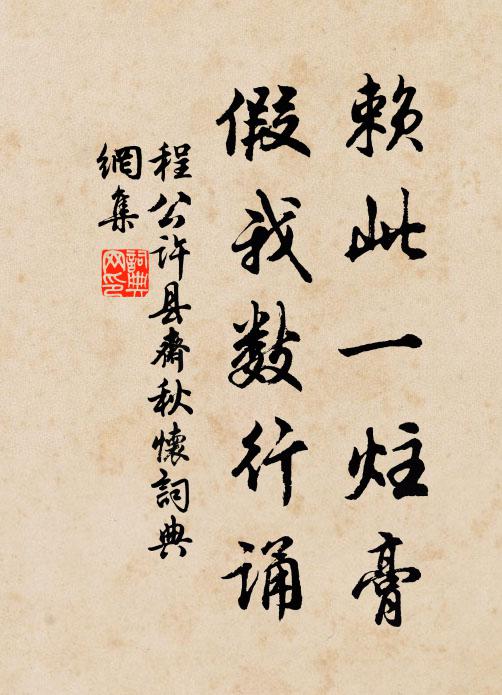 赖此一炷膏
假我数行诵
程公许县斋秋怀词典
網集
詞典網印